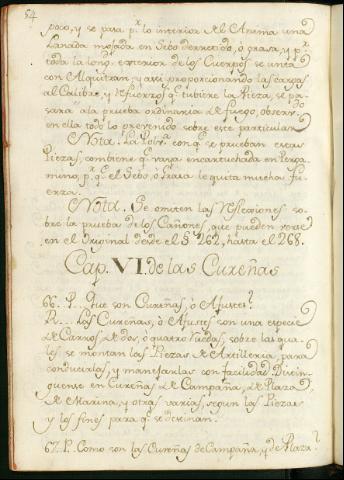 54
poco, y se para pr. lo interior del Anima una
Lanada mojada en Sebo derretido, ó grasa, y pr.
toda la longd. exterior de los Cuerpos se unta
con Alquitran; y asi proporcionando las cargas
al Calibre, y refuerzo qe. tubiere la Pieza, se pa-
sara a la prueba ordinaria de fuego, observando
en ella todo lo prevenido sobre este particular
Nota. La Polvra. con qe. se prueban estas
Piezas, combiene qe. vaya encartuchada en Perga
mino, pr. qe. el Sebo, ó Grasa le quita mucha fu-
erza.
Nota. Se omiten las Reflecciones so-
bre la prueba de los Cañones, que pueden verse
en el Original desde el § 262, hasta el 268.
Cap. VI. de las Cureñas
66. P... Que son Cureñas, ó Afustes?
R... Las Cureñas, ó Afustes son una especie
de Carros de dos, ó quatro Ruedas, sobre las qua-
les se montan las Piezas de Artilleria, para
conducirlas, y manejarlas con facilidad Distin-
guense en Cureñas de Campaña, de Plaza
de Marina, y otras varias, segun las Piezas
y los fines para qe. se destinan.
67. P. Como son las Cureñas de Campaña, y de Plaza?